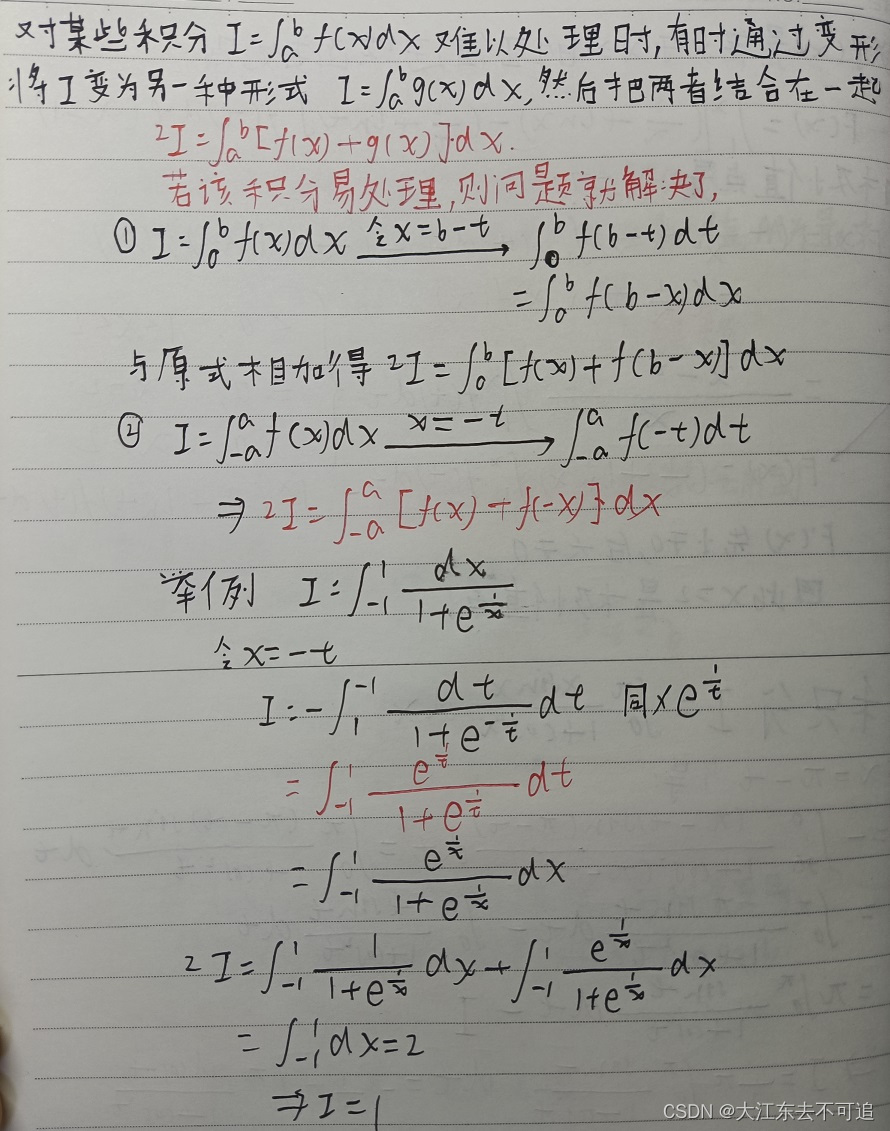 对某些积分 I=∫_a^b f(x)dx 难以处理时,有时通过变形
将I变为另一种形式 I=∫_a^b g(x)dx,然后把两者结合在一起
2I=∫_a^b [f(x)+g(x)]dx.
若该积分易处理,则问题就解决了,
① I=∫_0^b f(x)dx 令x=b-t → ∫_0^b f(b-t)dt
=∫_0^b f(b-x)dx
与原式相加得 2I=∫_0^b [f(x)+f(b-x)]dx
② I=∫_{-a}^a f(x)dx x=-t → ∫_{-a}^a f(-t)dt
⇒ 2I=∫_{-a}^a [f(x)+f(-x)]dx
举例 I=∫_{-1}^1 dx/(1+e^{1/x})
令x=-t
I=-∫_1^{-1} dt/(1+e^{-1/t}) dt 同×e^{1/t}
=∫_{-1}^1 e^{1/t}/(1+e^{1/t}) dt
=∫_{-1}^1 e^{1/x}/(1+e^{1/x}) dx
2I=∫_{-1}^1 1/(1+e^{1/x}) dx+∫_{-1}^1 e^{1/x}/(1+e^{1/x}) dx
=∫_{-1}^1 dx=2
⇒I=1
CSDN @大江东去不可追